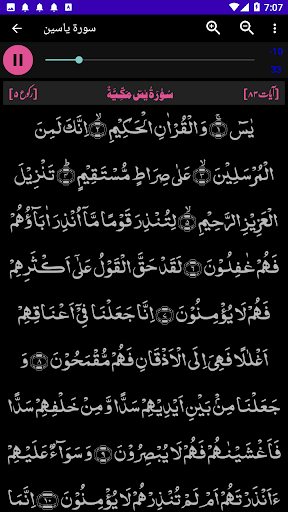 7:07
سورة ياسين
-10
33
[آیات ۸۳] سُوْرَةُ يٰسٓ مَكِّيَّةٌ [رکوع ۵]
يٰسٓ ۝۱ وَالْقُرْاٰنِ الْحَكِيْمِ ۝۲ اِنَّكَ لَمِنَ
الْمُرْسَلِيْنَ ۝۳ عَلٰى صِرَاطٍ مُّسْتَقِيْمٍ ۝۴ تَنْزِيْلَ
الْعَزِيْزِ الرَّحِيْمِ ۝۵ لِتُنْذِرَ قَوْمًا مَّاۤ اُنْذِرَ اٰبَآؤُهُمْ
فَهُمْ غٰفِلُوْنَ ۝۶ لَقَدْ حَقَّ الْقَوْلُ عَلٰۤى اَكْثَرِهِمْ
فَهُمْ لَا يُؤْمِنُوْنَ ۝۷ اِنَّا جَعَلْنَا فِيْۤ اَعْنَاقِهِمْ
اَغْلٰلًا فَهِيَ اِلَى الْاَذْقَانِ فَهُمْ مُّقْمَحُوْنَ ۝۸ وَ
جَعَلْنَا مِنْۢ بَيْنِ اَيْدِيْهِمْ سَدًّا وَّ مِنْ خَلْفِهِمْ سَدًّا
فَاَغْشَيْنٰهُمْ فَهُمْ لَا يُبْصِرُوْنَ ۝۹ وَسَوَآءٌ عَلَيْهِمْ
ءَاَنْذَرْتَهُمْ اَمْ لَمْ تُنْذِرْهُمْ لَا يُؤْمِنُوْنَ ۝۱۰ اِنَّمَا